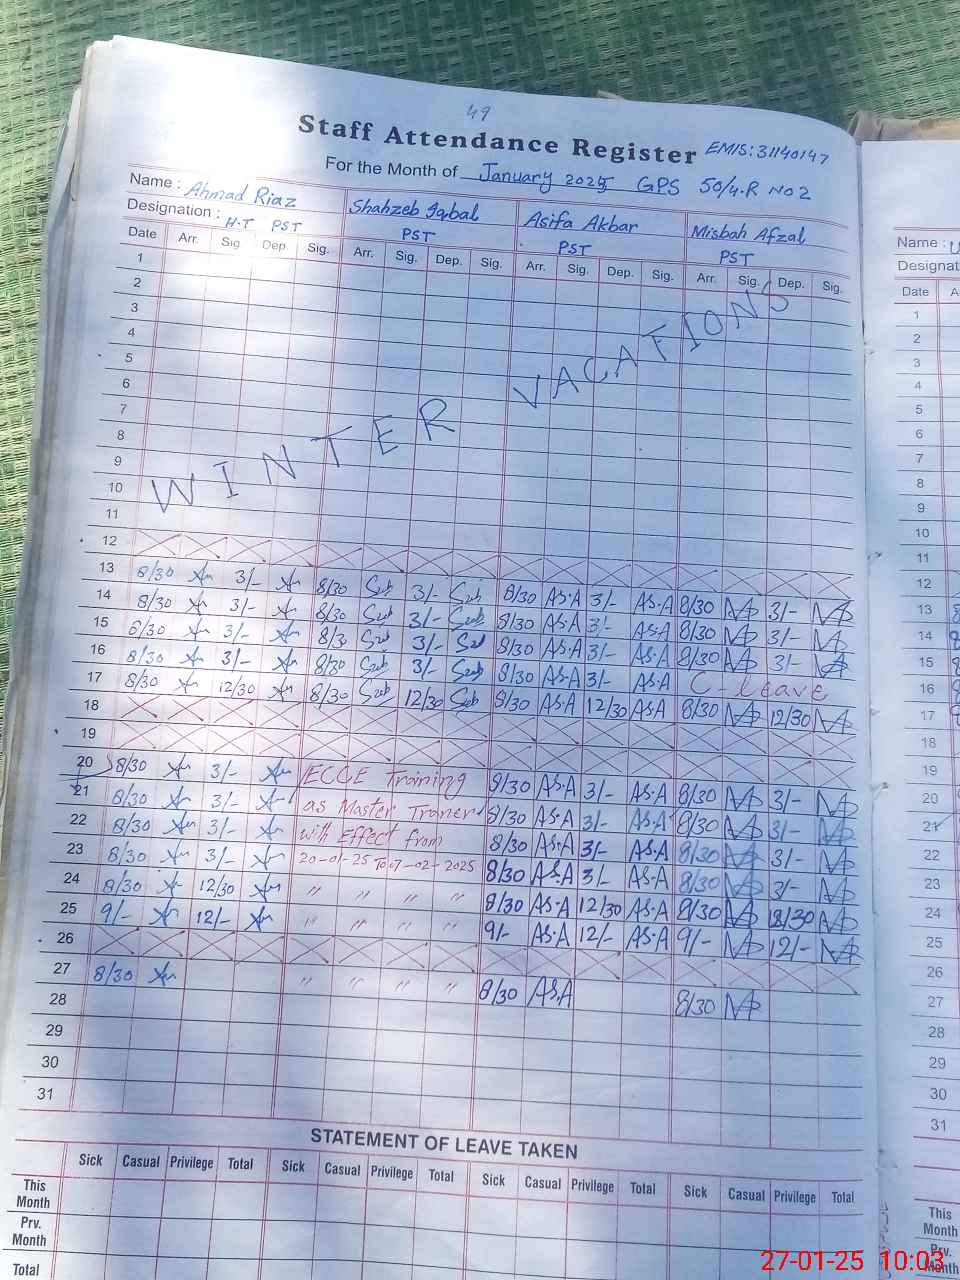 49
Staff Attendance Register EMIS:31140147
For the Month of January 2025 GPS 50/4.R NO 2
Name : Ahmad Riaz Shahzeb Iqbal Asifa Akbar Misbah Afzal
Designation : H.T PST PST PST PST
Date Arr. Sig. Dep. Sig. Arr. Sig. Dep. Sig. Arr. Sig. Dep. Sig. Arr. Sig. Dep. Sig.
1
2
3
4
5
6
7
8
9
10
11
WINTER VACATIONS
12
13 8/30 3/- 8/30 Sub 3/- Sub 8/30 AS.A 3/- AS.A 8/30 3/-
14 8/30 3/- 8/30 Sub 3/- Sub 8/30 AS.A 3/- AS.A 8/30 3/-
15 8/30 3/- 8/3 Sub 3/- Sub 8/30 AS.A 3/- AS.A 8/30 3/-
16 8/30 3/- 8/30 Sub 3/- Sub 8/30 AS.A 3/- AS.A C-leave
17 8/30 12/30 8/30 Sub 12/30 Sub 8/30 AS.A 12/30 AS.A 8/30 12/30
18
19
20 8/30 3/- ECCE Training 8/30 AS.A 3/- AS.A 8/30 3/-
21 8/30 3/- as Master Traner 8/30 AS.A 3/- AS.A 8/30 3/-
22 8/30 3/- with Effect from 8/30 AS.A 3/- AS.A 8/30 3/-
23 8/30 3/- 20-01-25 To 07-02-2025 8/30 AS.A 3/- AS.A 8/30 3/-
24 8/30 12/30 " " " " 8/30 AS.A 12/30 AS.A 8/30 12/30
25 9/- 12/- " " " " 9/- AS.A 12/- AS.A 9/- 12/-
26
27 8/30 " " " " 8/30 AS.A 8/30
28
29
30
31
STATEMENT OF LEAVE TAKEN
Sick Casual Privilege Total Sick Casual Privilege Total Sick Casual Privilege Total Sick Casual Privilege Total
This Month
Prv. Month
Total
Name : U
Designat
Date A
1
2
3
4
5
6
7
8
9
10
11
12
13
14
15
16
17
18
19
20
21
22
23
24
25
26
27
28
29
30
31
This Month
Prv. Month
27-01-25 10:03